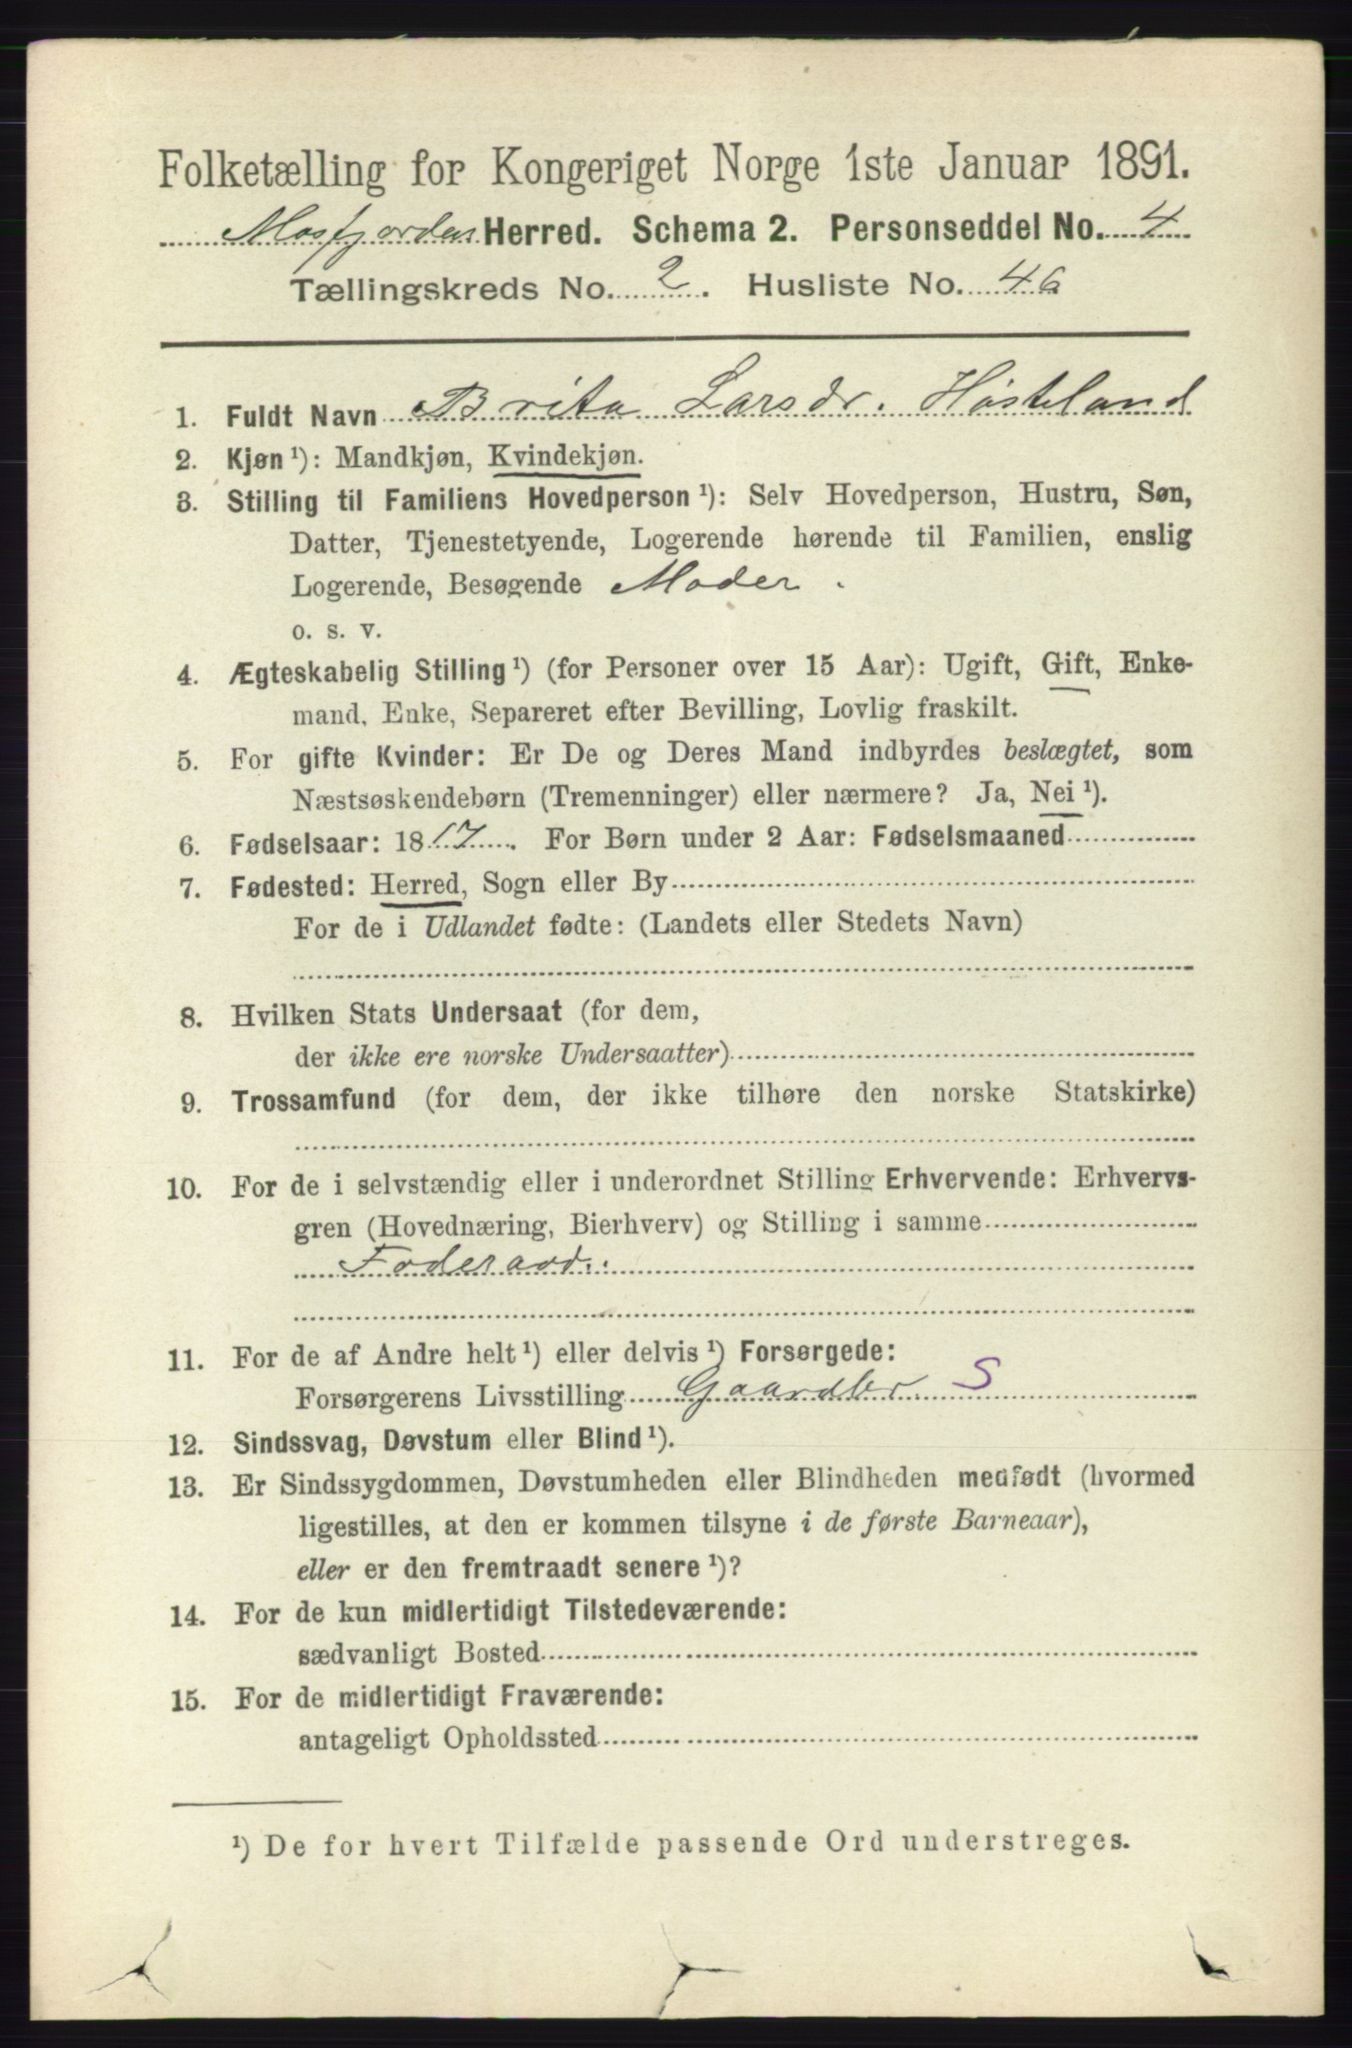 Folketælling for Kongeriget Norge 1ste Januar 1891.
Mosfjorden Herred. Schema 2. Personseddel No. 4
Tællingskreds No. 2. Husliste No. 46
1. Fuldt Navn Brita Larsdr. Høsteland
2. Kjøn ¹): Mandkjøn, Kvindekjøn.
3. Stilling til Familiens Hovedperson ¹): Selv Hovedperson, Hustru, Søn,
Datter, Tjenestetyende, Logerende hørende til Familien, enslig
Logerende, Besøgende Moder.
o. s. v.
4. Ægteskabelig Stilling ¹) (for Personer over 15 Aar): Ugift, Gift, Enke-
mand, Enke, Separeret efter Bevilling, Lovlig fraskilt.
5. For gifte Kvinder: Er De og Deres Mand indbyrdes beslægtet, som
Næstsøskendebørn (Tremenninger) eller nærmere? Ja, Nei ¹).
6. Fødselsaar: 1817. For Børn under 2 Aar: Fødselsmaaned
7. Fødested: Herred, Sogn eller By
For de i Udlandet fødte: (Landets eller Stedets Navn)
8. Hvilken Stats Undersaat (for dem,
der ikke ere norske Undersaatter)
9. Trossamfund (for dem, der ikke tilhøre den norske Statskirke)
10. For de i selvstændig eller i underordnet Stilling Erhvervende: Erhvervs-
gren (Hovednæring, Bierhverv) og Stilling i samme
Foderaad.
11. For de af Andre helt ¹) eller delvis ¹) Forsørgede:
Forsørgerens Livsstilling Gaardbr. S
12. Sindssvag, Døvstum eller Blind ¹).
13. Er Sindssygdommen, Døvstumheden eller Blindheden medfødt (hvormed
ligestilles, at den er kommen tilsyne i de første Barneaar),
eller er den fremtraadt senere ¹)?
14. For de kun midlertidigt Tilstedeværende:
sædvanligt Bosted
15. For de midlertidigt Fraværende:
antageligt Opholdssted
¹) De for hvert Tilfælde passende Ord understreges.